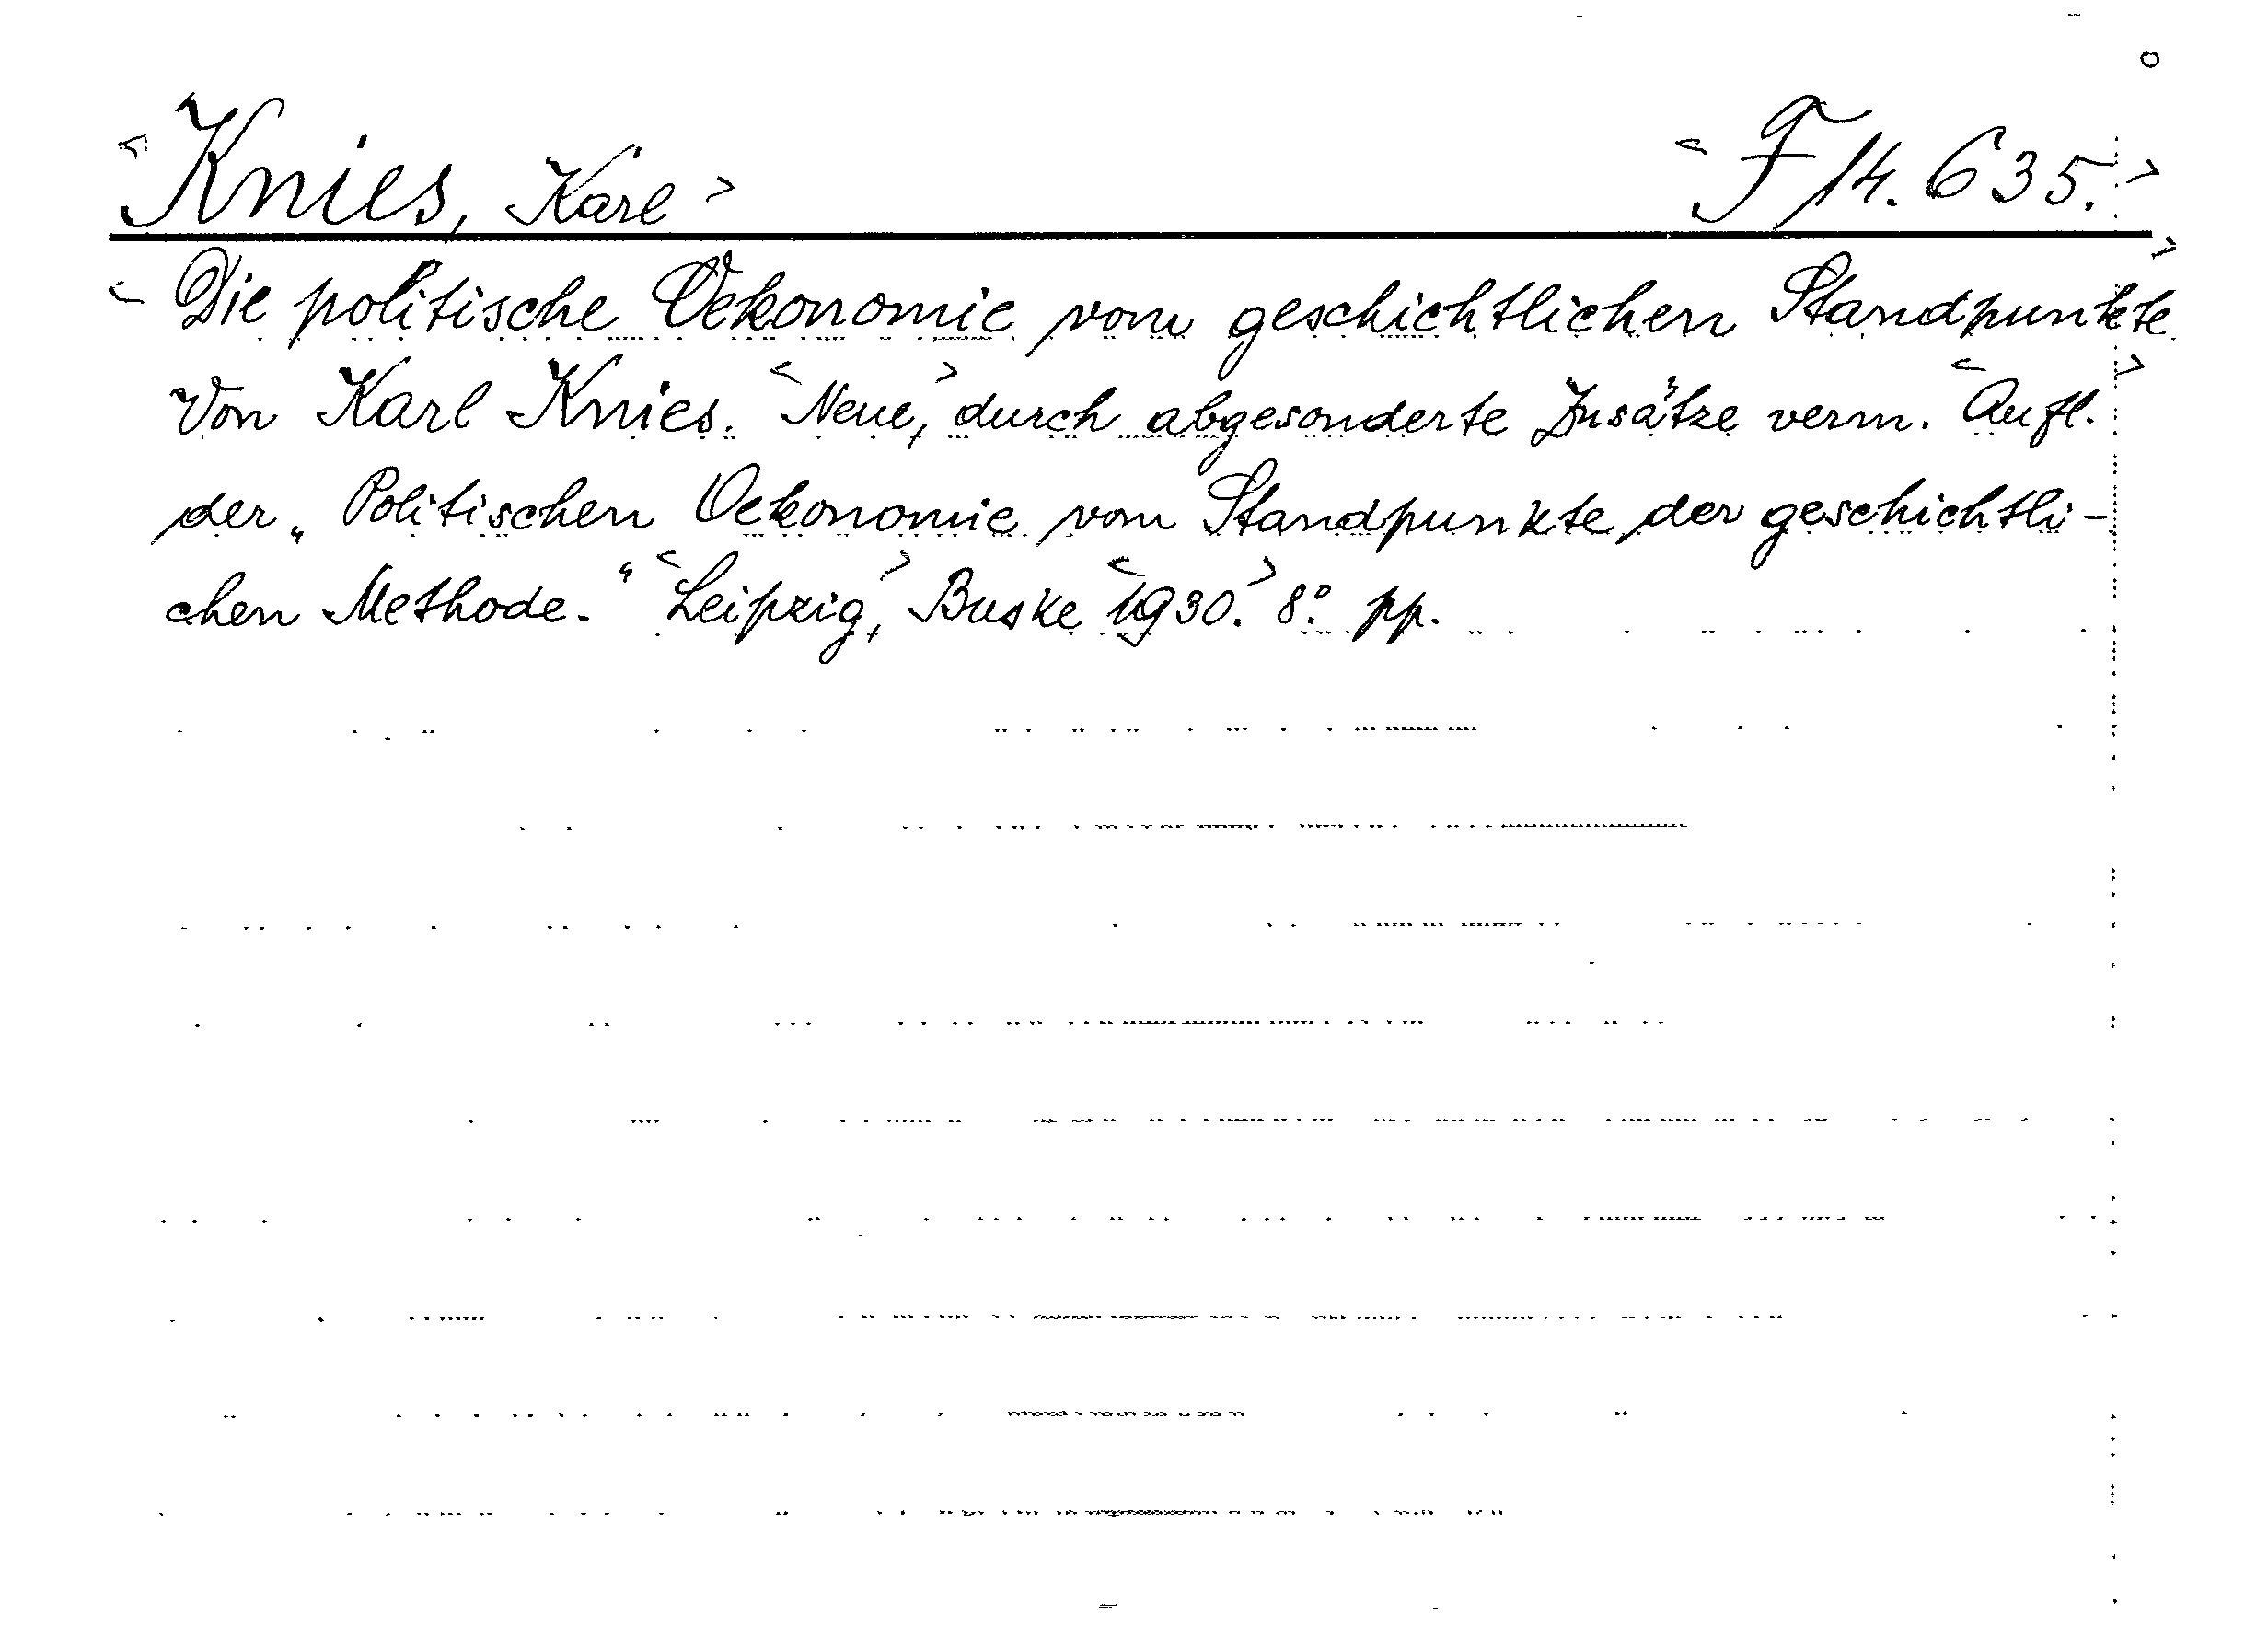 <Knies, Karl> <F 14.635.>
<Die politische Oekonomie vom geschichtlichen Standpunkte>
Von Karl Knies. <Neue,> durch abgesonderte Zusätze verm. <Aufl.>
der „Politischen Oekonomie vom Standpunkte der geschichtli-
chen Methode." <Leipzig,> Buske <1930.> 8° pp.